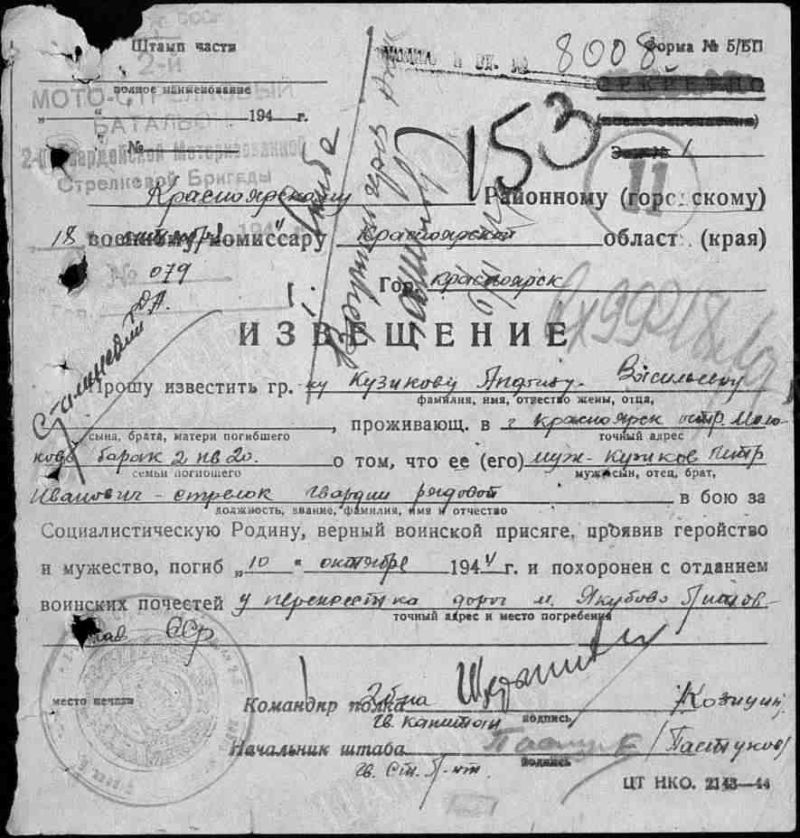 Штамп части
8008
Форма № 5/БП
2-й
полное наименование
МОТО-СТРЕЛКОВЫЙ
СЕКРЕТНО
„ “ 194 г.
БАТАЛЬО
153
№
2-й Гвардейской Моторизованной
Стрелковой Бригады
11
Красноярскому Районному (городскому)
18 военному комиссару Красноярской област (края)
№ 079
Гор. Красноярск
ИЗВЕЩЕНИЕ
Прошу известить гр. ку Кузикову Васильевну
фамилия, имя, отчество жены, отца,
, проживающ. в г Красноярск остр.
сына, брата, матери погибшего
точный адрес
барак 2 кв 20. о том, что ее (его) муж - Кузиков Петр
семьи погибшего
муж, сын, отец, брат,
Иванович - стрелок гвардии рядовой в бою за
должность, звание, фамилия, имя и отчество
Социалистическую Родину, верный воинской присяге, проявив геройство
и мужество, погиб „10 “ октября 1944 г. и похоронен с отданием
воинских почестей у перекрестка дорог м. Якубово
точный адрес и место погребения
ССР
место печати
Командир полка /Козицин/
гв. капитан
подпись
Начальник штаба /Пастухов/
гв. Ст. Л-нт.
подпись
ЦТ НКО. 2143—44